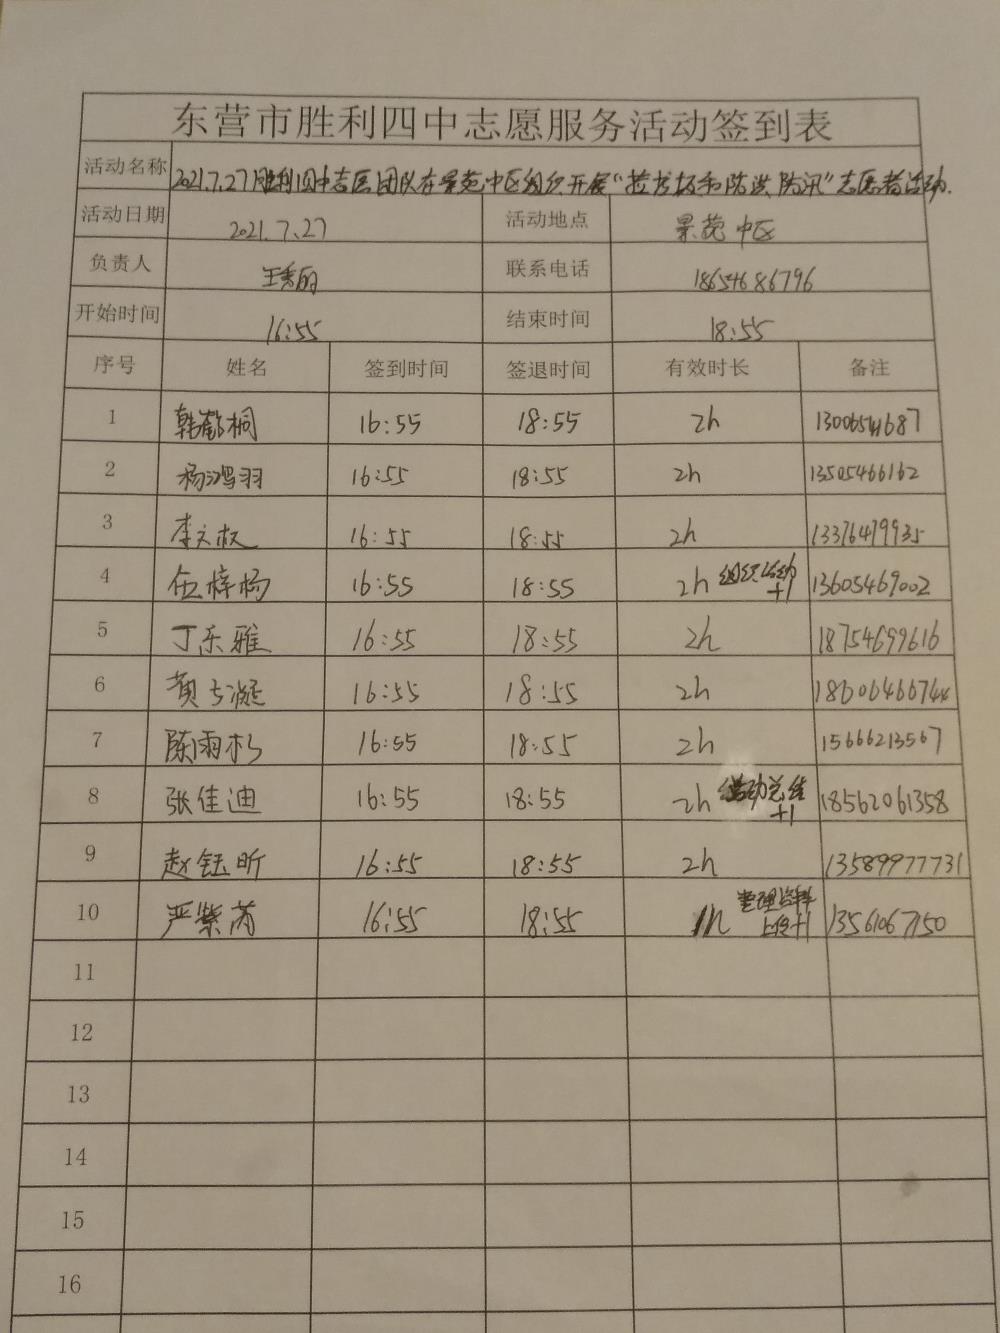 东营市胜利四中志愿服务活动签到表
活动名称 2021.7.27胜利四中志愿团队在景苑中区组织开展“ 和防洪防汛”志愿者活动.
活动日期 2021.7.27 活动地点 景苑中区
负责人 王秀丽 联系电话 18654686796
开始时间 16:55 结束时间 18:55
序号 姓名 签到时间 签退时间 有效时长 备注
1 韩懿桐 16:55 18:55 2h
2 杨鸿羽 16:55 18:55 2h 13505466162
3 李文权 16:55 18:55 2h 13376479935
4 伍梓杨 16:55 18:55 2h 组织活动+1 13605469002
5 丁乐雅 16:55 18:55 2h 18754699616
6 黄 凝 16:55 18:55 2h
7 陈雨杉 16:55 18:55 2h 15666213567
8 张佳迪 16:55 18:55 2h 活动总结+1 18562061358
9 赵钰昕 16:55 18:55 2h 13589977731
10 严紫芮 16:55 18:55 整理资料上传+1 13561067150
11
12
13
14
15
16